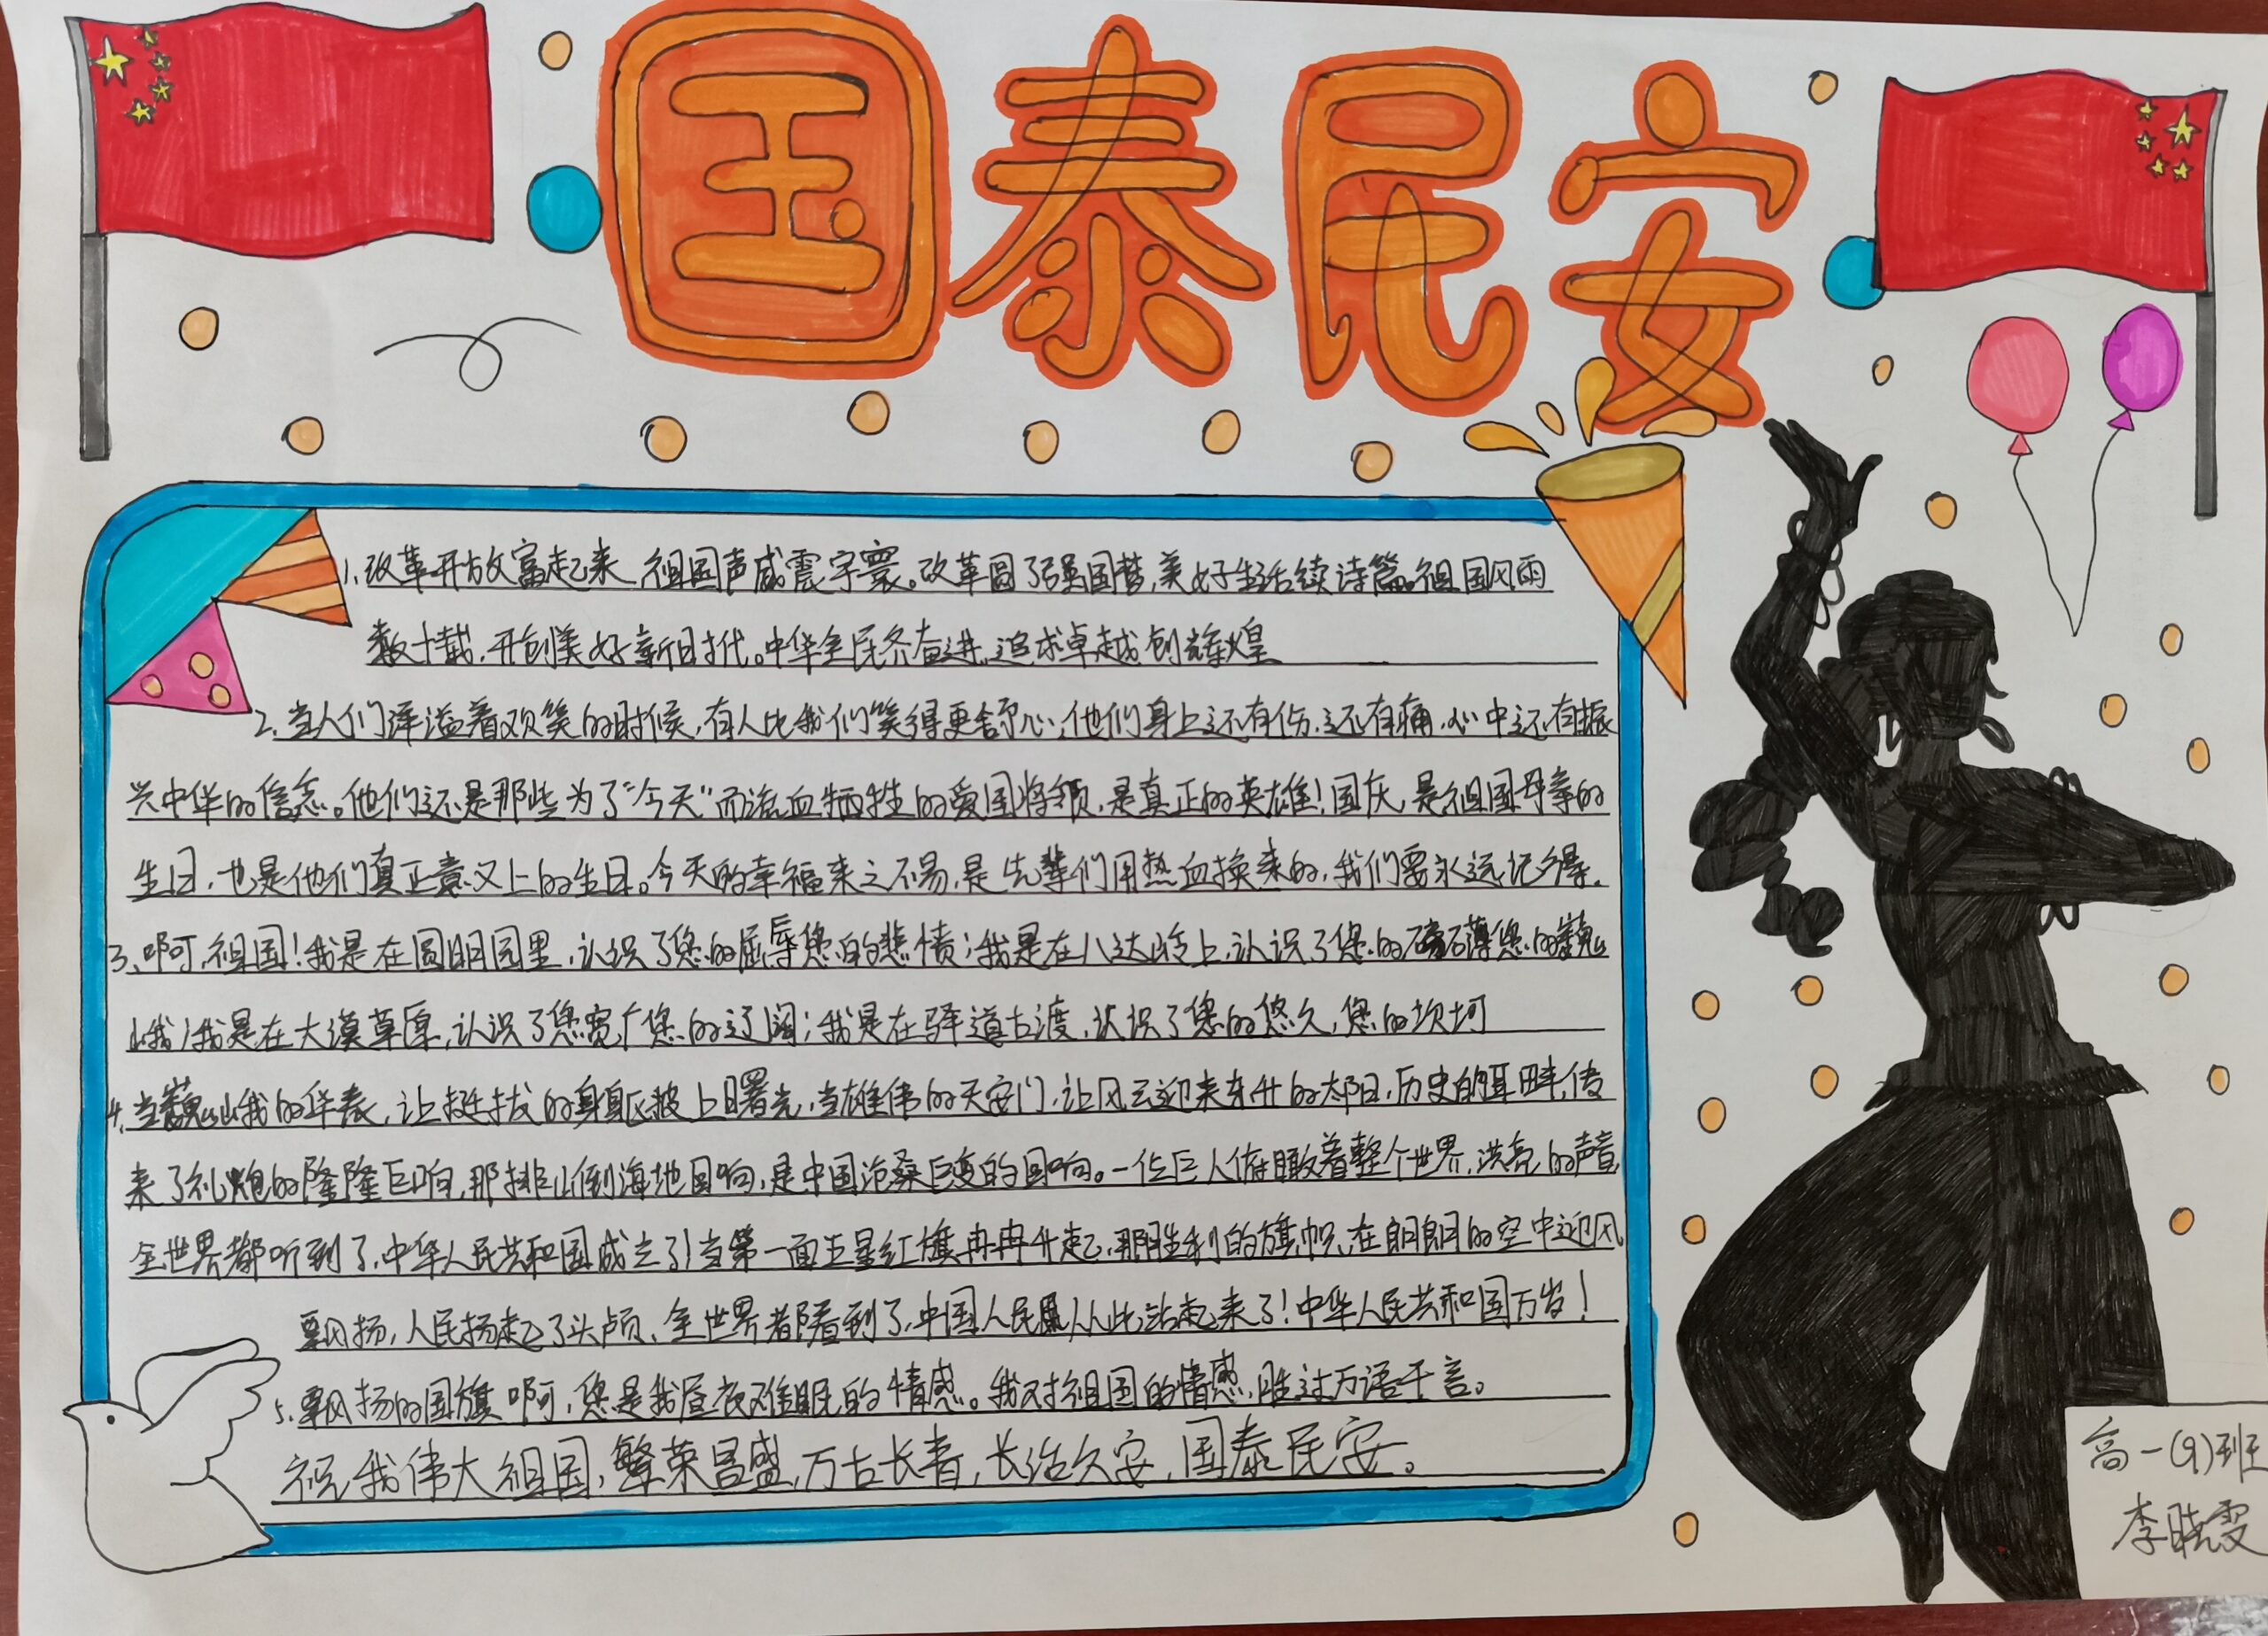 国泰民安
1.改革开放富起来,祖国声威震宇寰。改革圆了强国梦,美好生活续诗篇。祖国风雨
数十载,开创美好新时代。中华全民齐奋进,追求卓越创辉煌
2.当人们洋溢着欢笑的时候,有人比我们笑得更舒心;他们身上还有伤,还有痛,心中还有振
兴中华的信念。他们还是那些为了“今天”而流血牺牲的爱国将领,是真正的英雄!国庆,是祖国母亲的
生日,也是他们真正意义上的生日。今天的幸福来之不易,是先辈们用热血换来的,我们要永远记得.
3、啊,祖国!我是在圆明园里,认识了您的屈辱您的悲愤;我是在八达岭上,认识了您的磅礴您的巍
峨;我是在大漠草原,认识了您宽广您的辽阔;我是在驿道古渡,认识了您的悠久,您的坎坷
4、当巍峨的华表,让挺拔的身躯披上曙光,当雄伟的天安门,让风云迎来东升的太阳,历史的耳畔,传
来了礼炮的隆隆巨响,那排山倒海地回响,是中国沧桑巨变的回响。一位巨人俯瞰着整个世界,洪亮的声音
全世界都听到了,中华人民共和国成立了!当第一面五星红旗冉冉升起,那胜利的旗帜,在朗朗的空中迎风
飘扬,人民扬起了头颅、全世界都看到了,中国人民从此站起来了!中华人民共和国万岁!
5、飘扬的国旗啊,您是我昼夜难眠的情感。我对祖国的情感,胜过万语千言。
祝我伟大祖国,繁荣昌盛,万古长青,长治久安,国泰民安。
高一(9)班
李晓雯